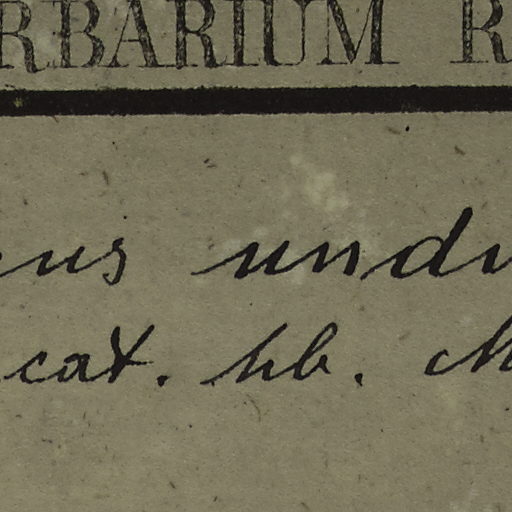 RBARIUM R
us undu
cat. hb. M